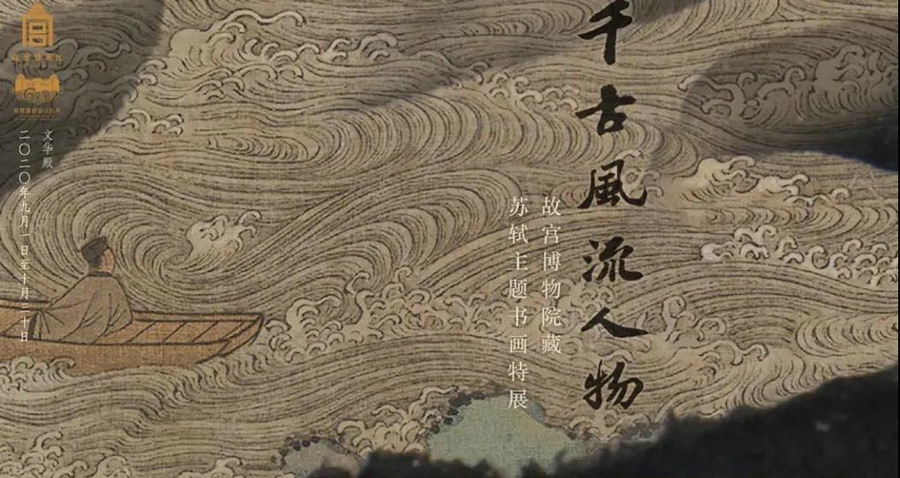 千古風流人物
故宫博物院藏
苏轼主题书画特展
文华殿
二〇二〇年九月一日至十月三十日